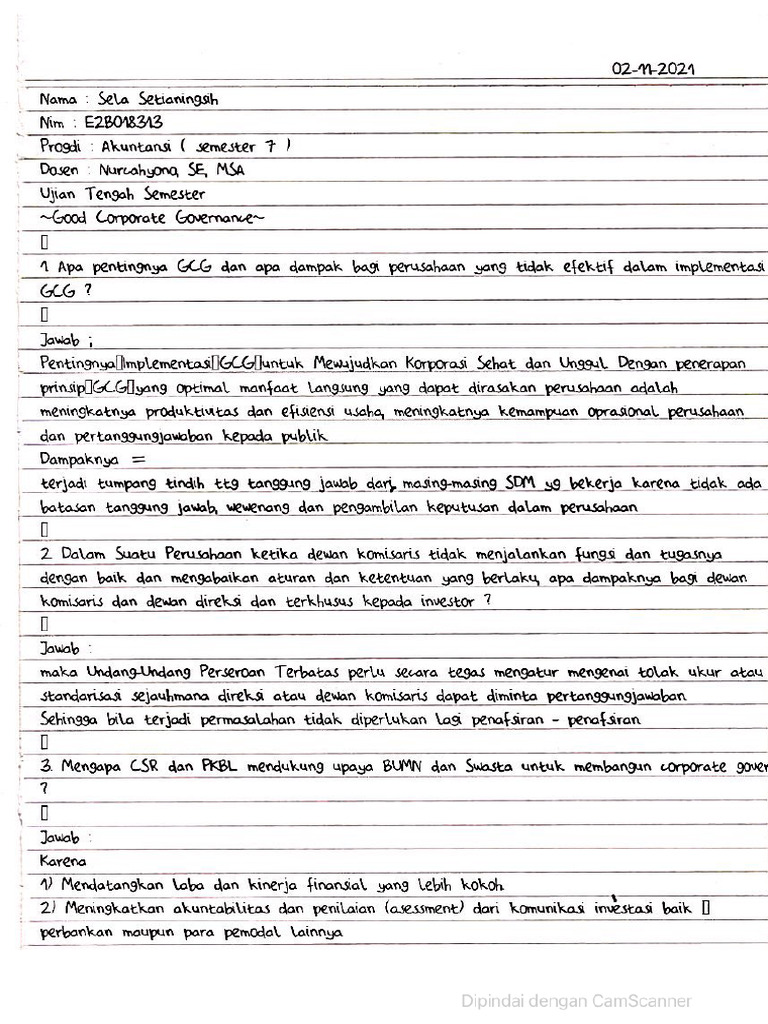 02-11-2021
Nama : Sela Setianingsih
Nim : E2B018313
Progdi : Akuntansi ( semester 7 )
Dosen : Nurcahyono, SE, MSA
Ujian Tengah Semester
~Good Corporate Governance~
▯
1 Apa pentingnya GCG dan apa dampak bagi perusahaan yang tidak efektif dalam implementasi
GCG ?
▯
Jawab ;
Pentingnya▯Implementasi▯GCG▯untuk Mewujudkan Korporasi Sehat dan Unggul Dengan penerapan
prinsip▯GCG▯yang optimal manfaat langsung yang dapat dirasakan perusahaan adalah
meningkatnya produktivtas dan efisiensi usaha, meningkatnya kemampuan oprasional perusahaan
dan pertanggungjawaban kepada publik
Dampaknya =
terjadi tumpang tindih ttg tanggung jawab dari, masing-masing SDM yg bekerja karena tidak ada
batasan tanggung jawab, wewenang dan pengambilan keputusan dalam perusahaan
▯
2 Dalam Suatu Perusahaan ketika dewan komisaris tidak menjalankan fungsi dan tugasnya
dengan baik dan mengabaikan aturan dan ketentuan yang berlaku, apa dampaknya bagi dewan
komisaris dan dewan direksi dan terkhusus kepada investor ?
▯
Jawab :
maka Undang-Undang Perseroan Terbatas perlu secara tegas mengatur mengenai tolak ukur atau
standarisasi sejauhmana direksi atau dewan komisaris dapat diminta pertanggungjawaban
Sehingga bila terjadi permasalahan tidak diperlukan lagi penafsiran - penafsiran
▯
3. Mengapa CSR dan PKBL mendukung upaya BUMN dan Swasta untuk membangun corporate gover
?
▯
Jawab :
Karena
1) Mendatangkan laba dan kinerja finansial yang lebih kokoh
2) Meningkatkan akuntabilitas dan penilaian (asessment) dari komunikasi investasi baik ▯
perbankan maupun para pemodal lainnya
Dipindai dengan CamScanner